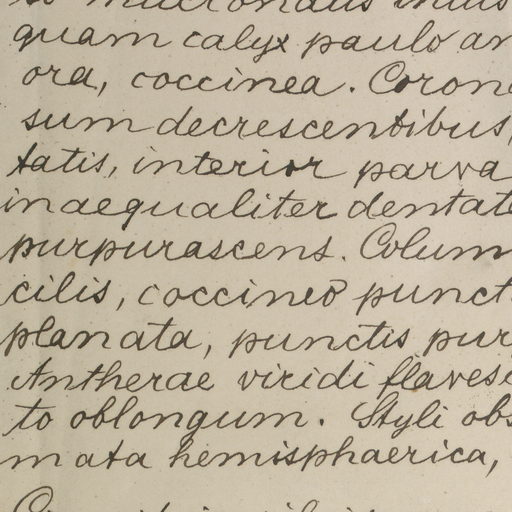 mucronatis
quam calyx paulo
ora, coccinea. Coron
sum decrescentibus,
tatis, interior parva
inaequaliter dentat
purpurascens. Colum
cilis, coccineo punct
planata, punctis pur
Antherae viridi flaves
to oblongum. Styli obs
mata hemisphaerica,